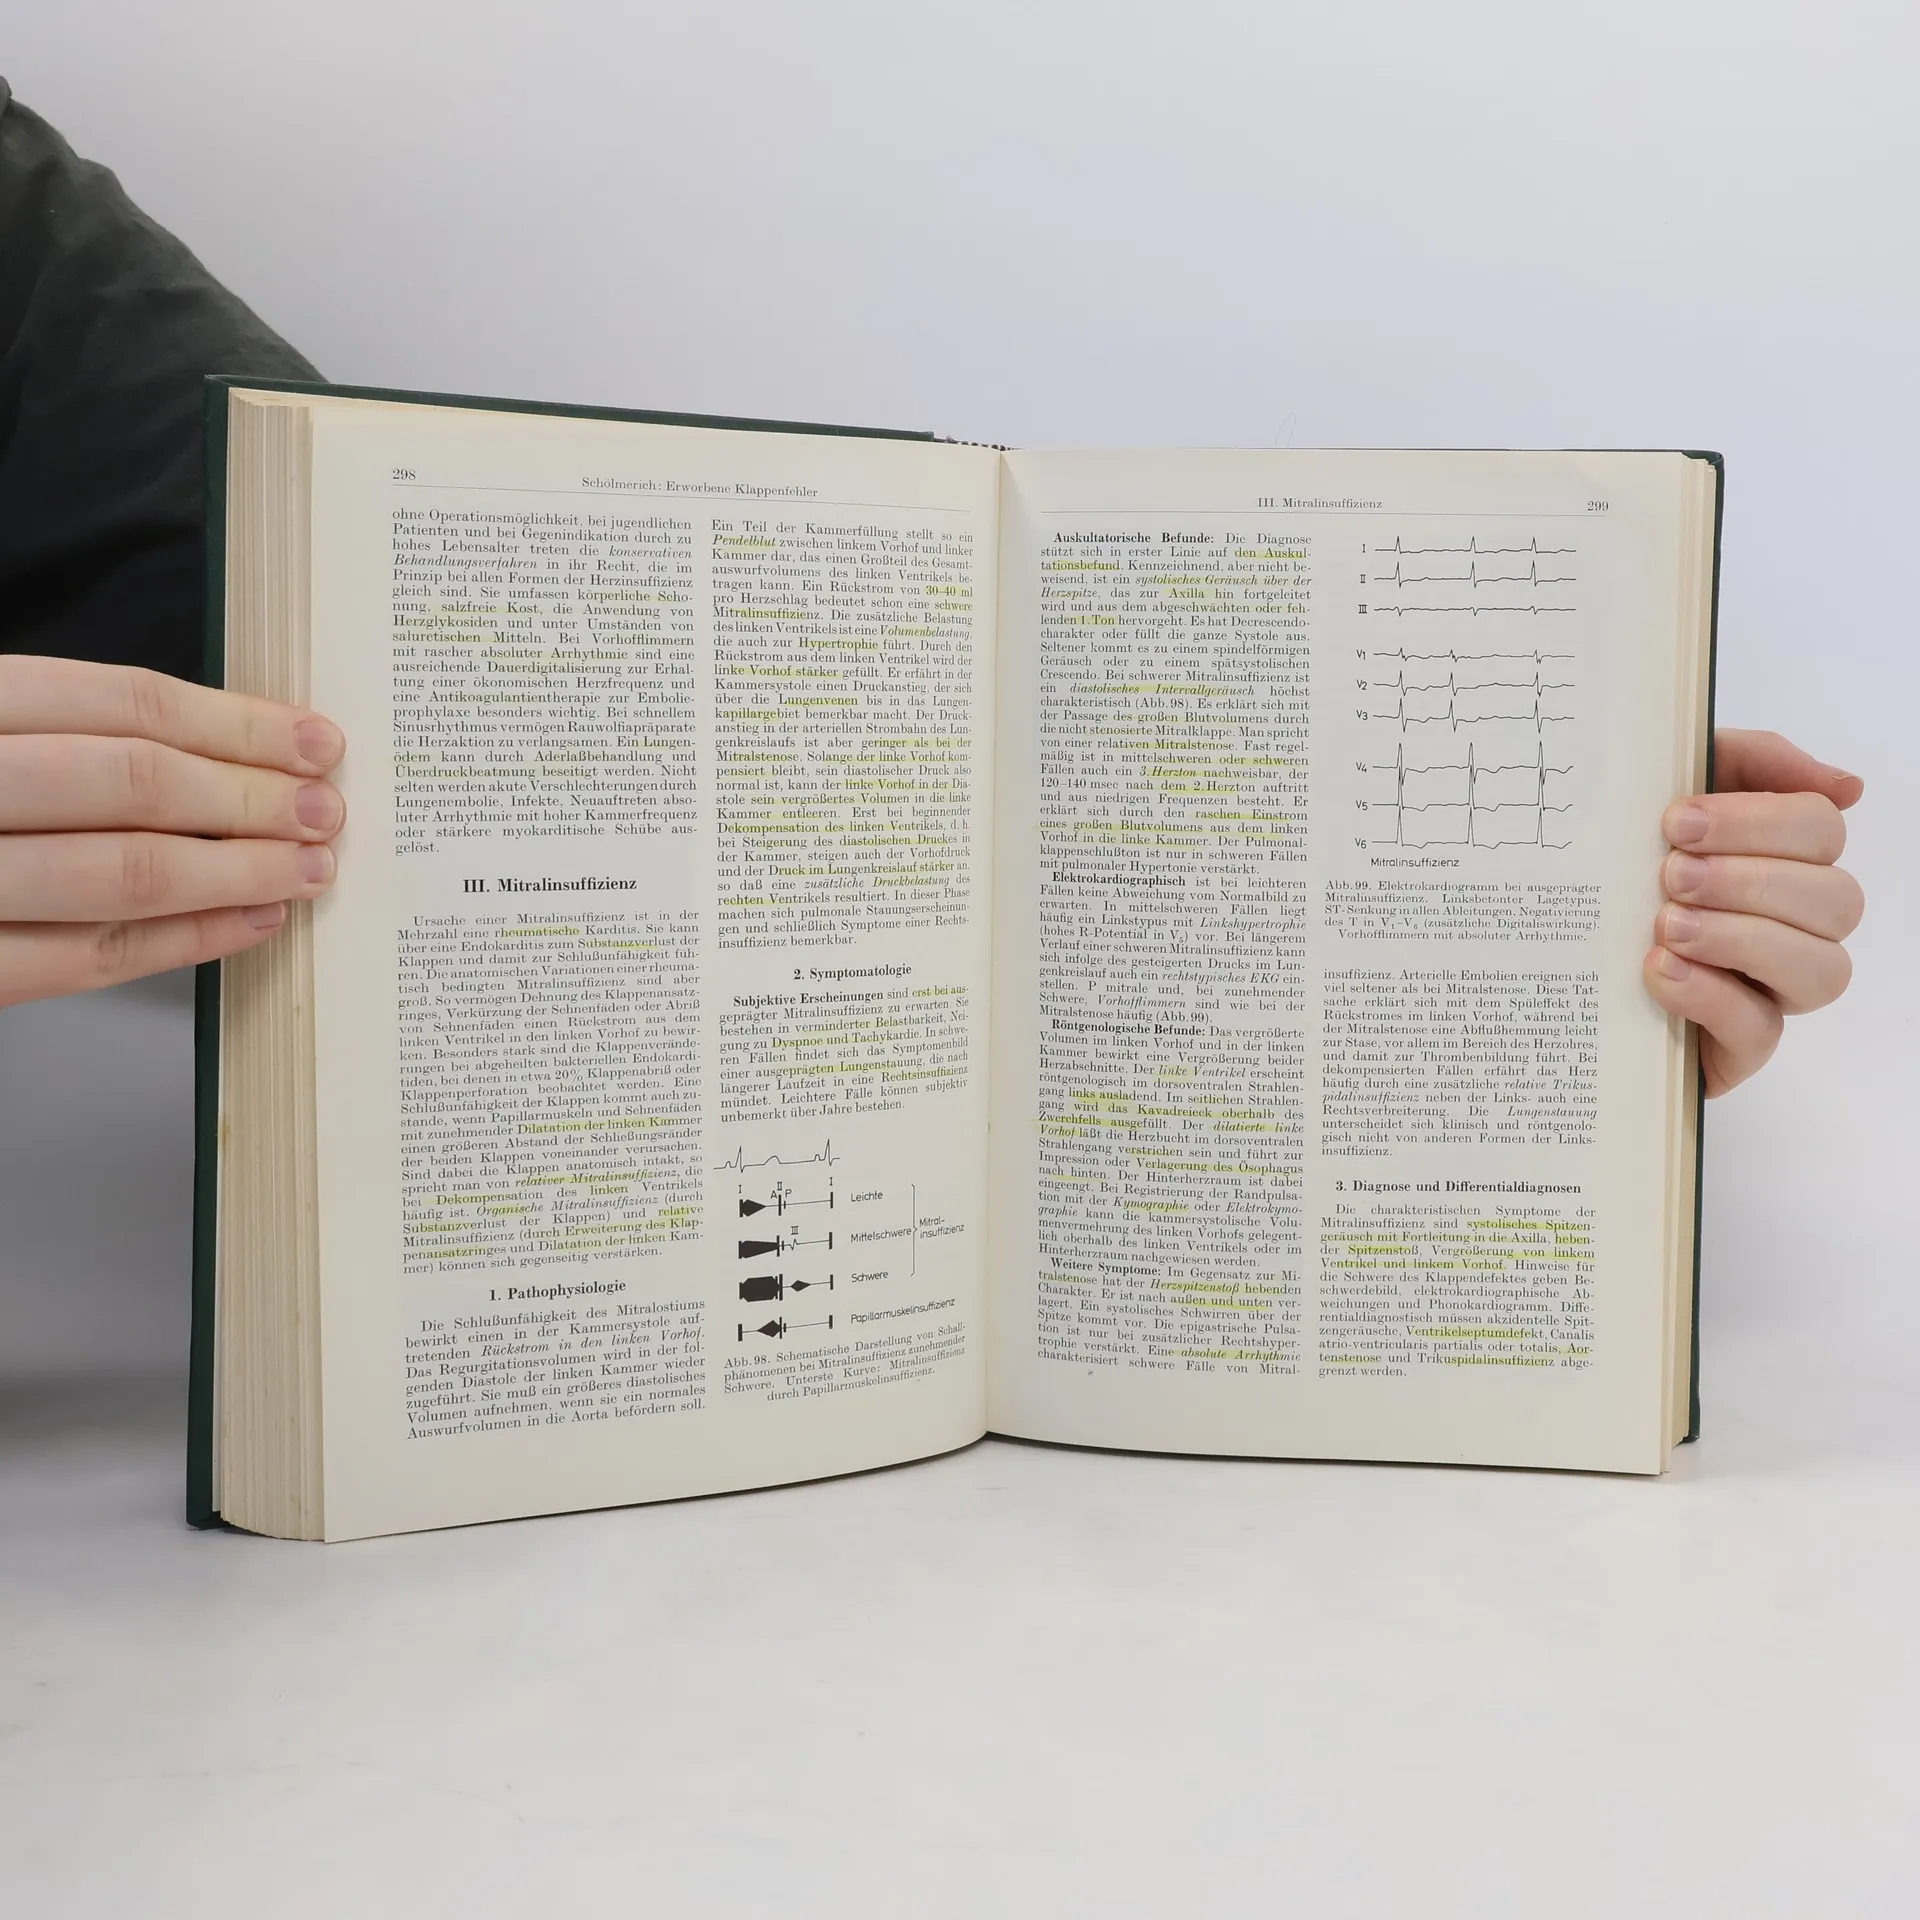 298
Schölmerich: Erworbene Klappenfehler
ohne Operationsmöglichkeit, bei jugendlichen
Patienten und bei Gegenindikation durch zu
hohes Lebensalter treten die konservativen
Behandlungsverfahren in ihr Recht, die im
Prinzip bei allen Formen der Herzinsuffizienz
gleich sind. Sie umfassen körperliche Scho-
nung, salzfreie Kost, die Anwendung von
Herzglykosiden und unter Umständen von
saluretischen Mitteln. Bei Vorhofflimmern
mit rascher absoluter Arrhythmie sind eine
ausreichende Dauerdigitalisierung zur Erhal-
tung einer ökonomischen Herzfrequenz und
eine Antikoagulantientherapie zur Embolie-
prophylaxe besonders wichtig. Bei schnellem
Sinusrhythmus vermögen Rauwolfiapräparate
die Herzaktion zu verlangsamen. Ein Lungen-
ödem kann durch Aderlaßbehandlung und
Überdruckbeatmung beseitigt werden. Nicht
selten werden akute Verschlechterungen durch
Lungenembolie, Infekte, Neuauftreten abso-
luter Arrhythmie mit hoher Kammerfrequenz
oder stärkere myokarditische Schübe aus-
gelöst.
III. Mitralinsuffizienz
Ursache einer Mitralinsuffizienz ist in der
Mehrzahl eine rheumatische Karditis. Sie kann
über eine Endokarditis zum Substanzverlust der
Klappen und damit zur Schlußunfähigkeit füh-
ren. Die anatomischen Variationen einer rheuma-
tisch bedingten Mitralinsuffizienz sind aber
groß. So vermögen Dehnung des Klappenansatz-
ringes, Verkürzung der Sehnenfäden oder Abriß
von Sehnenfäden einen Rückstrom aus dem
linken Ventrikel in den linken Vorhof zu bewir-
ken. Besonders stark sind die Klappenverände-
rungen bei abgeheilten bakteriellen Endokardi-
tiden, bei denen in etwa 20% Klappenabriß oder
Klappenperforation beobachtet werden. Eine
Schlußunfähigkeit der Klappen kommt auch zu-
stande, wenn Papillarmuskeln und Sehnenfäden
mit zunehmender Dilatation der linken Kammer
einen größeren Abstand der Schließungsränder
der beiden Klappen voneinander verursachen.
Sind dabei die Klappen anatomisch intakt, so
spricht man von relativer Mitralinsuffizienz, die
bei Dekompensation des linken Ventrikels
häufig ist. Organische Mitralinsuffizienz (durch
Substanzverlust der Klappen) und relative
Mitralinsuffizienz (durch Erweiterung des Klap-
penansatzringes und Dilatation der linken Kam-
mer) können sich gegenseitig verstärken.
1. Pathophysiologie
Die Schlußunfähigkeit des Mitralostiums
bewirkt einen in der Kammersystole auf-
tretenden Rückstrom in den linken Vorhof.
Das Regurgitationsvolumen wird in der fol-
genden Diastole der linken Kammer wieder
zugeführt. Sie muß ein größeres diastolisches
Volumen aufnehmen, wenn sie ein normales
Auswurfvolumen in die Aorta befördern soll.
Ein Teil der Kammerfüllung stellt so ein
Pendelblut zwischen linkem Vorhof und linker
Kammer dar, das einen Großteil des Gesamt-
auswurfvolumens des linken Ventrikels be-
tragen kann. Ein Rückstrom von 30–40 ml
pro Herzschlag bedeutet schon eine schwere
Mitralinsuffizienz. Die zusätzliche Belastung
des linken Ventrikels ist eine Volumenbelastung,
die auch zur Hypertrophie führt. Durch den
Rückstrom aus dem linken Ventrikel wird der
linke Vorhof stärker gefüllt. Er erfährt in der
Kammersystole einen Druckanstieg, der sich
über die Lungenvenen bis in das Lungen-
kapillargebiet bemerkbar macht. Der Druck-
anstieg in der arteriellen Strombahn des Lun-
genkreislaufs ist aber geringer als bei der
Mitralstenose. Solange der linke Vorhof kom-
pensiert bleibt, sein diastolischer Druck also
normal ist, kann der linke Vorhof in der Dia-
stole sein vergrößertes Volumen in die linke
Kammer entleeren. Erst bei beginnender
Dekompensation des linken Ventrikels, d. h.
bei Steigerung des diastolischen Druckes in
der Kammer, steigen auch der Vorhofdruck
und der Druck im Lungenkreislauf stärker an,
so daß eine zusätzliche Druckbelastung des
rechten Ventrikels resultiert. In dieser Phase
machen sich pulmonale Stauungserscheinun-
gen und schließlich Symptome einer Rechts-
insuffizienz bemerkbar.
2. Symptomatologie
Subjektive Erscheinungen sind erst bei aus-
geprägter Mitralinsuffizienz zu erwarten. Sie
bestehen in verminderter Belastbarkeit, Nei-
gung zu Dyspnoe und Tachykardie. In schwe-
ren Fällen findet sich das Symptomenbild
einer ausgeprägten Lungenstauung, die nach
längerer Laufzeit in eine Rechtsinsuffizienz
mündet. Leichtere Fälle können subjektiv
unbemerkt über Jahre bestehen.
I A II P I
Leichte
III
Mittelschwere
Mitral-
insuffizienz
Schwere
Papillarmuskelinsuffizienz
Abb. 98. Schematische Darstellung von Schall-
phänomenen bei Mitralinsuffizienz zunehmender
Schwere. Unterste Kurve: Mitralinsuffizienz
durch Papillarmuskelinsuffizienz.
III. Mitralinsuffizienz
299
Auskultatorische Befunde: Die Diagnose
stützt sich in erster Linie auf den Auskul-
tationsbefund. Kennzeichnend, aber nicht be-
weisend, ist ein systolisches Geräusch über der
Herzspitze, das zur Axilla hin fortgeleitet
wird und aus dem abgeschwächten oder feh-
lenden 1. Ton hervorgeht. Es hat Decrescendo-
charakter oder füllt die ganze Systole aus.
Seltener kommt es zu einem spindelförmigen
Geräusch oder zu einem spätsystolischen
Crescendo. Bei schwerer Mitralinsuffizienz ist
ein diastolisches Intervallgeräusch höchst
charakteristisch (Abb. 98). Es erklärt sich mit
der Passage des großen Blutvolumens durch
die nicht stenosierte Mitralklappe. Man spricht
von einer relativen Mitralstenose. Fast regel-
mäßig ist in mittelschweren oder schweren
Fällen auch ein 3. Herzton nachweisbar, der
120–140 msec nach dem 2. Herzton auftritt
und aus niedrigen Frequenzen besteht. Er
erklärt sich durch den raschen Einstrom
eines großen Blutvolumens aus dem linken
Vorhof in die linke Kammer. Der Pulmonal-
klappenschlußton ist nur in schweren Fällen
mit pulmonaler Hypertonie verstärkt.
Elektrokardiographisch ist bei leichteren
Fällen keine Abweichung vom Normalbild zu
erwarten. In mittelschweren Fällen liegt
häufig ein Linkstypus mit Linkshypertrophie
(hohes R-Potential in V5) vor. Bei längerem
Verlauf einer schweren Mitralinsuffizienz kann
sich infolge des gesteigerten Drucks im Lun-
genkreislauf auch ein rechtstypisches EKG ein-
stellen. P mitrale und, bei zunehmender
Schwere, Vorhofflimmern sind wie bei der
Mitralstenose häufig (Abb. 99).
Röntgenologische Befunde: Das vergrößerte
Volumen im linken Vorhof und in der linken
Kammer bewirkt eine Vergrößerung beider
Herzabschnitte. Der linke Ventrikel erscheint
röntgenologisch im dorsoventralen Strahlen-
gang links ausladend. Im seitlichen Strahlen-
gang wird das Kavadreieck oberhalb des
Zwerchfells ausgefüllt. Der dilatierte linke
Vorhof läßt die Herzbucht im dorsoventralen
Strahlengang verstrichen sein und führt zur
Impression oder Verlagerung des Ösophagus
nach hinten. Der Hinterherzraum ist dabei
eingeengt. Bei Registrierung der Randpulsa-
tion mit der Kymographie oder Elektrokymo-
graphie kann die kammersystolische Volu-
menvermehrung des linken Vorhofs gelegent-
lich oberhalb des linken Ventrikels oder im
Hinterherzraum nachgewiesen werden.
Weitere Symptome: Im Gegensatz zur Mi-
tralstenose hat der Herzspitzenstoß hebenden
Charakter. Er ist nach außen und unten ver-
lagert. Ein systolisches Schwirren über der
Spitze kommt vor. Die epigastrische Pulsa-
tion ist nur bei zusätzlicher Rechtshyper-
trophie verstärkt. Eine absolute Arrhythmie
charakterisiert schwere Fälle von Mitral-
I
II
III
V1
V2
V3
V4
V5
V6
Mitralinsuffizienz
Abb. 99. Elektrokardiogramm bei ausgeprägter
Mitralinsuffizienz. Linksbetonter Lagetypus.
ST-Senkung in allen Ableitungen. Negativierung
des T in V1–V6 (zusätzliche Digitaliswirkung).
Vorhofflimmern mit absoluter Arrhythmie.
insuffizienz. Arterielle Embolien ereignen sich
viel seltener als bei Mitralstenose. Diese Tat-
sache erklärt sich mit dem Spüleffekt des
Rückstromes im linken Vorhof, während bei
der Mitralstenose eine Abflußhemmung leicht
zur Stase, vor allem im Bereich des Herzohres,
und damit zur Thrombenbildung führt. Bei
dekompensierten Fällen erfährt das Herz
häufig durch eine zusätzliche relative Trikus-
pidalinsuffizienz neben der Links- auch eine
Rechtsverbreiterung. Die Lungenstauung
unterscheidet sich klinisch und röntgenolo-
gisch nicht von anderen Formen der Links-
insuffizienz.
3. Diagnose und Differentialdiagnosen
Die charakteristischen Symptome der
Mitralinsuffizienz sind systolisches Spitzen-
geräusch mit Fortleitung in die Axilla, heben-
der Spitzenstoß, Vergrößerung von linkem
Ventrikel und linkem Vorhof. Hinweise für
die Schwere des Klappendefektes geben Be-
schwerdebild, elektrokardiographische Ab-
weichungen und Phonokardiogramm. Diffe-
rentialdiagnostisch müssen akzidentelle Spit-
zengeräusche, Ventrikelseptumdefekt, Canalis
atrio-ventricularis partialis oder totalis, Aor-
tenstenose und Trikuspidalinsuffizienz abge-
grenzt werden.